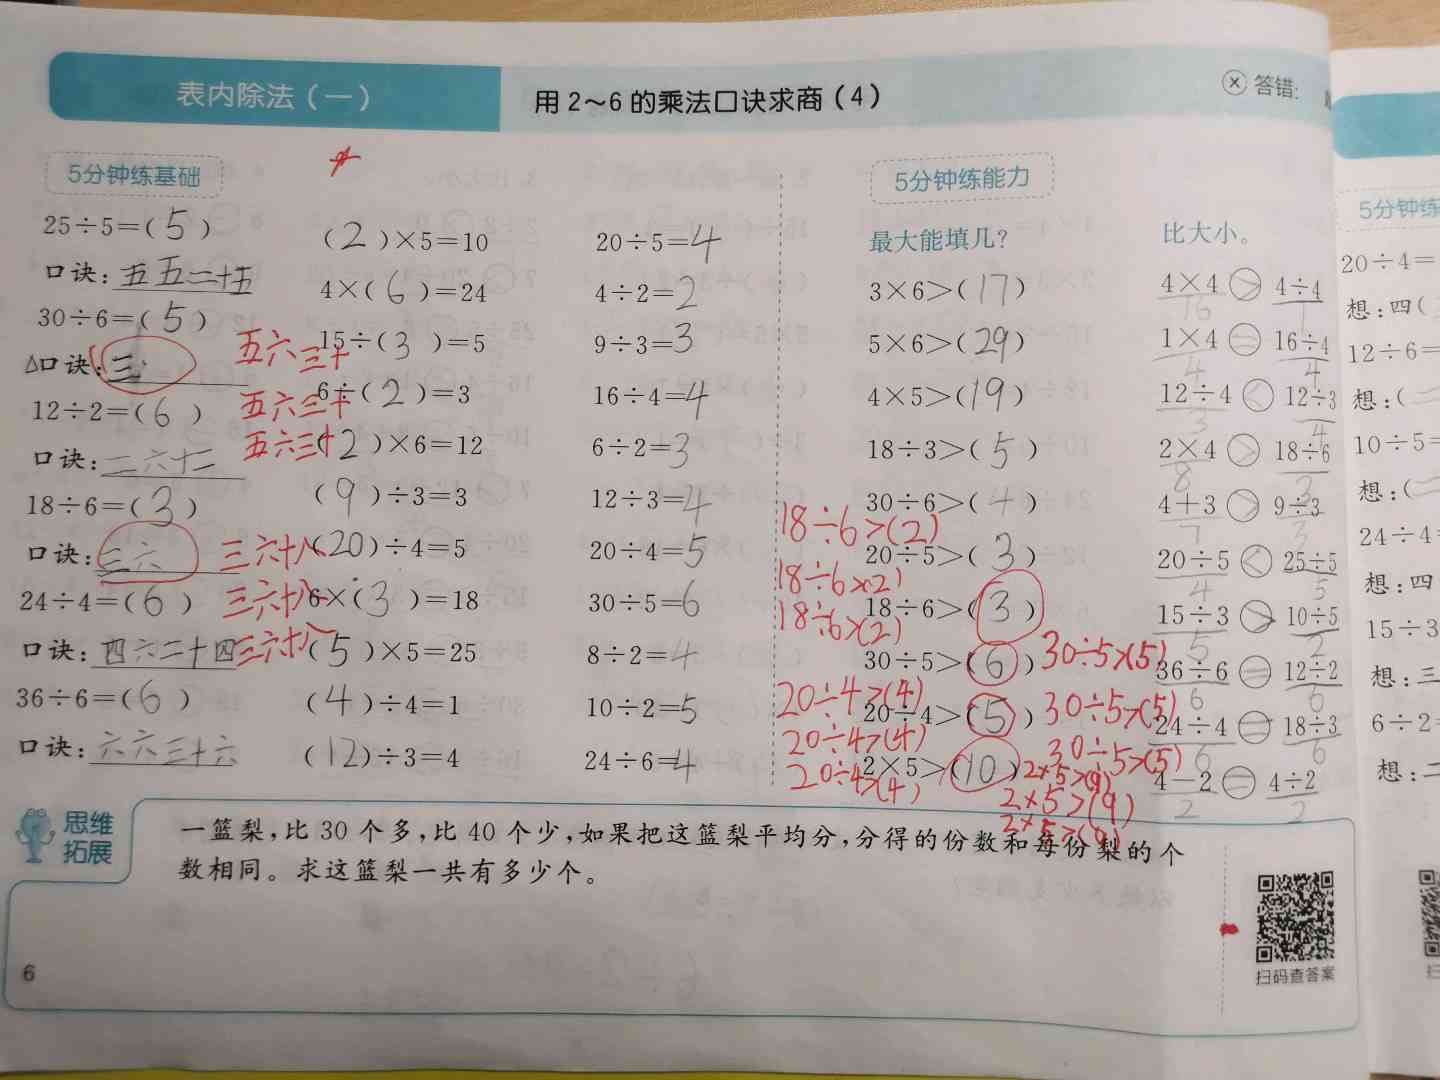 表内除法（一）
用2～6的乘法口诀求商（4）
答错:
5分钟练基础
25÷5=(5)
口诀:五五二十五
30÷6=(5)
口诀:三
五六三十
五六三十
五六三十
12÷2=(6)
口诀:二六十二
18÷6=(3)
口诀:三六
三六十八
三六十八
三六十八
24÷4=(6)
口诀:四六二十四
36÷6=(6)
口诀:六六三十六
(2)×5=10
4×(6)=24
15÷(3)=5
6÷(2)=3
(2)×6=12
(9)÷3=3
(20)÷4=5
6×(3)=18
(5)×5=25
(4)÷4=1
(12)÷3=4
20÷5=4
4÷2=2
9÷3=3
16÷4=4
6÷2=3
12÷3=4
20÷4=5
30÷5=6
8÷2=4
10÷2=5
24÷6=4
5分钟练能力
最大能填几?
3×6>(17)
5×6>(29)
4×5>(19)
18÷3>(5)
30÷6>(4)
20÷5>(3)
18÷6>(3)
18÷6>(2)
18÷6>(2)
18÷6>(2)
30÷5>(6)
30÷5>(5)
30÷5>(5)
30÷5>(5)
20÷4>(5)
20÷4>(4)
20÷4>(4)
20÷4>(4)
2×5>(10)
2×5>(9)
2×5>(9)
2×5>(9)
比大小。
4×4>4÷4
16 1
1×4=16÷4
4 4
12÷4<12÷3
3 4
2×4>18÷6
8 3
4+3>9÷3
7 3
20÷5<25÷5
4 5
15÷3>10÷5
5 2
36÷6=12÷2
6 6
24÷4=18÷3
6 6
4-2=4÷2
2 2
思维
拓展
一篮梨,比30个多,比40个少,如果把这篮梨平均分,分得的份数和每份梨的个
数相同。求这篮梨一共有多少个。
扫码查答案
6
5分钟练
20÷4=
想:四(
12÷6=
想:(二
10÷5=
想:(二
24÷4
想:四
15÷3
想:三
6÷2=
想:二